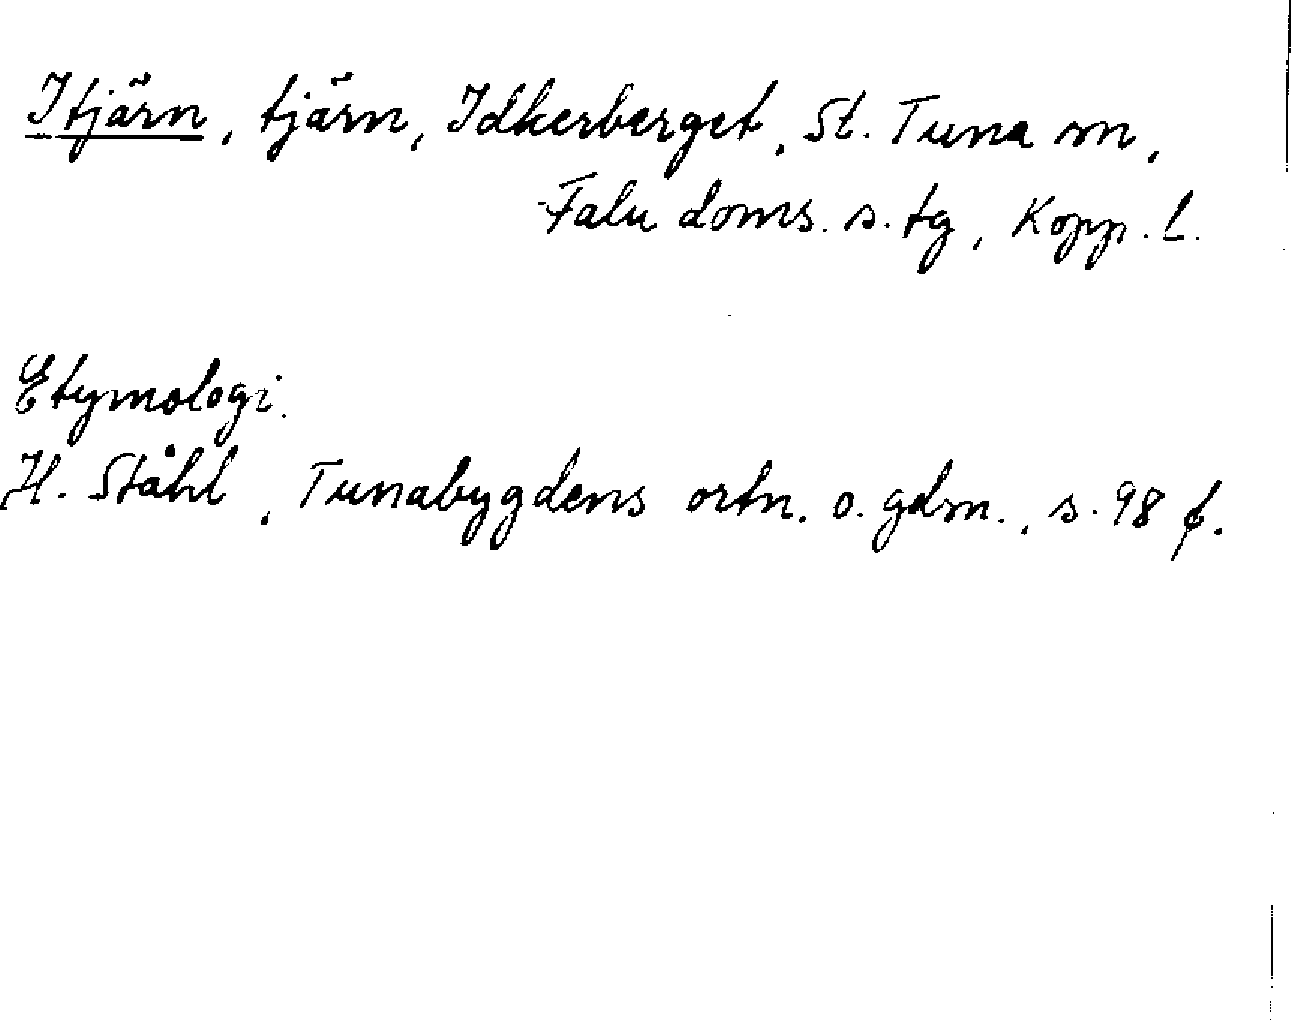 Itjärn, tjärn, Idkerberget, St. Tuna sn,
Falu doms. s. tg, Kopp. l.
Etymologi.
H. Ståhl, Tunabygdens ortn. o. gdm., s. 98 f.